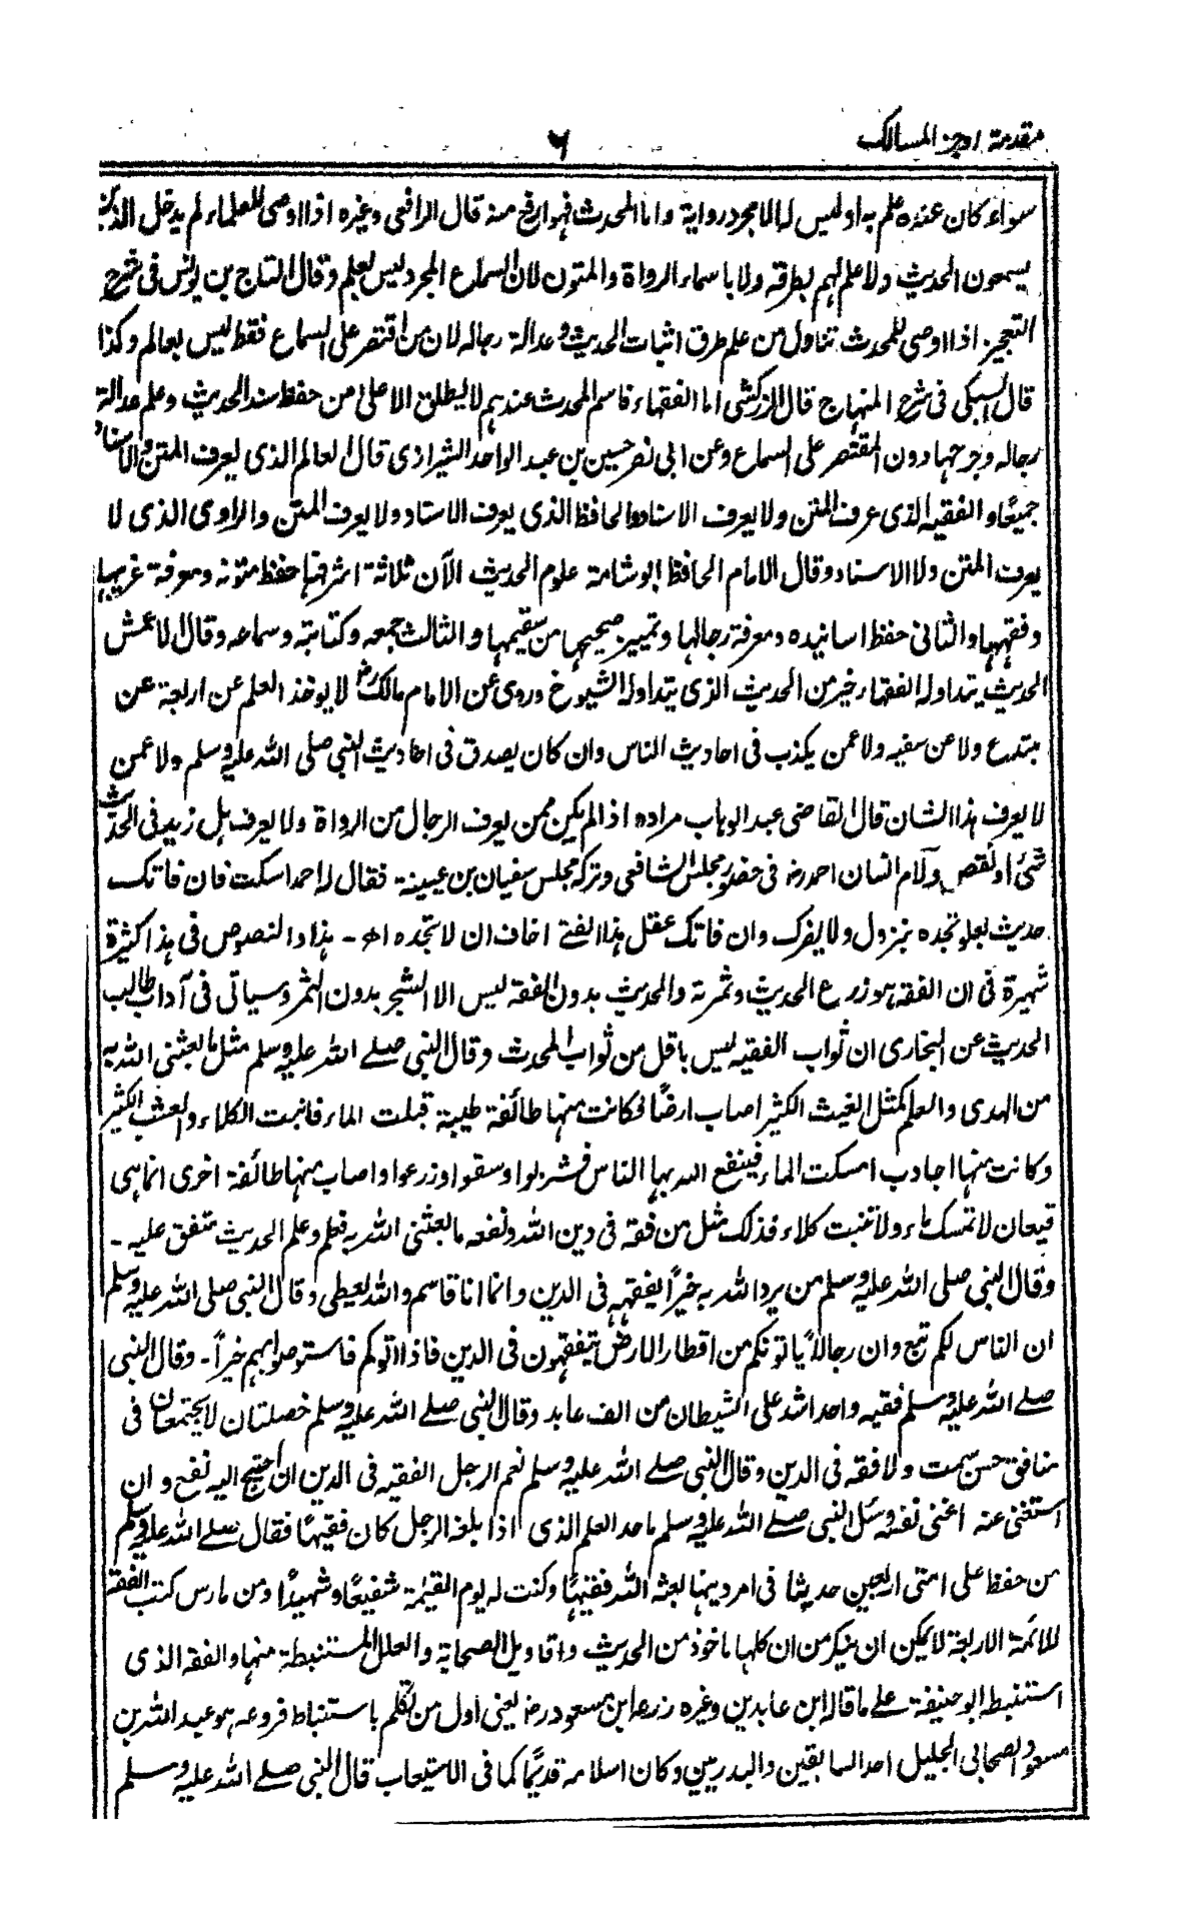 مقدمة اوجز المسالك
٦
سواء كان عنده علم به او ليس له الا مجرد رواية واما المحدث فهو ارفع منه قال الرافعى وغيره اذا اوصى للعلماء لم يدخل الذين
يسمعون الحديث ولا علم لهم بطرقه ولا باسماء الرواة والمتون لان السماع المجرد ليس بعلم وقال التاج بن يونس فى شرح
التعجيز اذا اوصى للمحدث تناول من علم طرق اثبات الحديث وعدالة رجاله لان من اقتصر على السماع فقط ليس بعالم وكذا
قال السبكى فى شرح المنهاج قال الزركشى اما الفقهاء فاسم المحدث عندهم لا يطلق الا على من حفظ سند الحديث وعلم عدالة
رجاله وجرحها دون المقتصر على السماع وعن ابى نصر حسين بن عبد الواحد الشيرازى قال العالم الذى يعرف المتن والاسناد
جميعًا والفقيه الذى عرف المتن ولا يعرف الاسناد والحافظ الذى يعرف الاسناد ولا يعرف المتن والراوى الذى لا
يعرف المتن ولا الاسناد وقال الامام الحافظ ابو شامة علوم الحديث الآن ثلاثة اشرفها حفظ متونه ومعرفة غريبها
وفقهها والثانى حفظ اسانيده ومعرفة رجالها وتمييز صحيحها من سقيمها والثالث جمعه وكتابته وسماعه وقال الاعمش
الحديث يتداوله الفقهاء خير من الحديث الذى يتداوله الشيوخ وروى عن الامام مالك رض لا يوخذ العلم عن اربعة عن
مبتدع ولا عن سفيه ولا عمن يكذب فى احاديث الناس وان كان يصدق فى احاديث النبى صلى الله عليه وسلم ولا عمن
لا يعرف هذا الشان قال القاضى عبد الوهاب مراده اذا لم يكن ممن يعرف الرجال من الرواة ولا يعرف هل زيد فى الحديث
شئ او نقص ولام انسان احمد رض فى حضور مجلس الشافعى وتركه مجلس سفيان بن عيينة فقال له احمد اسكت فان فاتك
حديث بعلو تجده بنزول ولا يضرك وان فاتك عقل هذا الفتے اخاف ان لا تجده اھ - هذا والنصوص فى هذا كثيرة
شهيرة فى ان الفقه هو زرع الحديث وثمرته والحديث بدون الفقه ليس الا الشجر بدون الثمر وسياتى فى آداب طالب
الحديث عن البخارى ان ثواب الفقيه ليس باقل من ثواب المحدث وقال النبى صلے الله عليه وسلم مثل ما بعثنى الله به
من الهدى والعلم كمثل الغيث الكثير اصاب ارضًا فكانت منها طائفة طيبة قبلت الماء فانبتت الكلاء والعشب الكثير
وكانت منها اجادب امسكت الماء فينفع الله بها الناس فشربوا وسقوا وزرعوا واصاب منها طائفة اخرى انما هى
قيعان لا تمسك ماء ولا تنبت كلاء فذلك مثل من فقه فى دين الله ونفعه ما بعثنى الله به فعلم وعلم الحديث متفق عليه -
وقال النبى صلى الله عليه وسلم من يرد الله به خيرًا يفقهه فى الدين وانما انا قاسم والله يعطى وقال النبى صلى الله عليه وسلم
ان الناس لكم تبع وان رجالاً ياتونكم من اقطار الارض يتفقهون فى الدين فاذا اتوكم فاستوصوا بهم خيراً - وقال النبى
صلے الله عليه وسلم فقيه واحد اشد على الشيطان من الف عابد وقال النبى صلے الله عليه وسلم خصلتان لا يجتمعان فى
منافق حسن سمت ولا فقه فى الدين وقال النبى صلے الله عليه وسلم نعم الرجل الفقيه فى الدين ان احتيج اليه نفع وان
استغنى عنه اغنى نفسه وسئل النبى صلے الله عليه وسلم ما حد العلم الذى اذا بلغه الرجل كان فقيهًا فقال صلے الله عليه وسلم
من حفظ على امتى اربعين حديثا فى امر دينها بعثه الله فقيهًا وكنت له يوم القيٰمة شفيعًا وشهيدًا ومن مارس كتب الفقه
للائمة الاربعة لا يمكن ان ينكر من ان كلها ماخوذ من الحديث واقاويل الصحابة والعلل المستنبطة منها والفقه الذى
استنبط ابو حنيفة علے ما قاله ابن عابدين وغيره زرعه ابن مسعود رض يعنى اول من تكلم باستنباط فروعه هو عبد الله بن
مسعود الصحابى الجليل احد السابقين والبدريين وكان اسلامه قديمًا كما فى الاستيعاب قال النبى صلے الله عليه وسلم